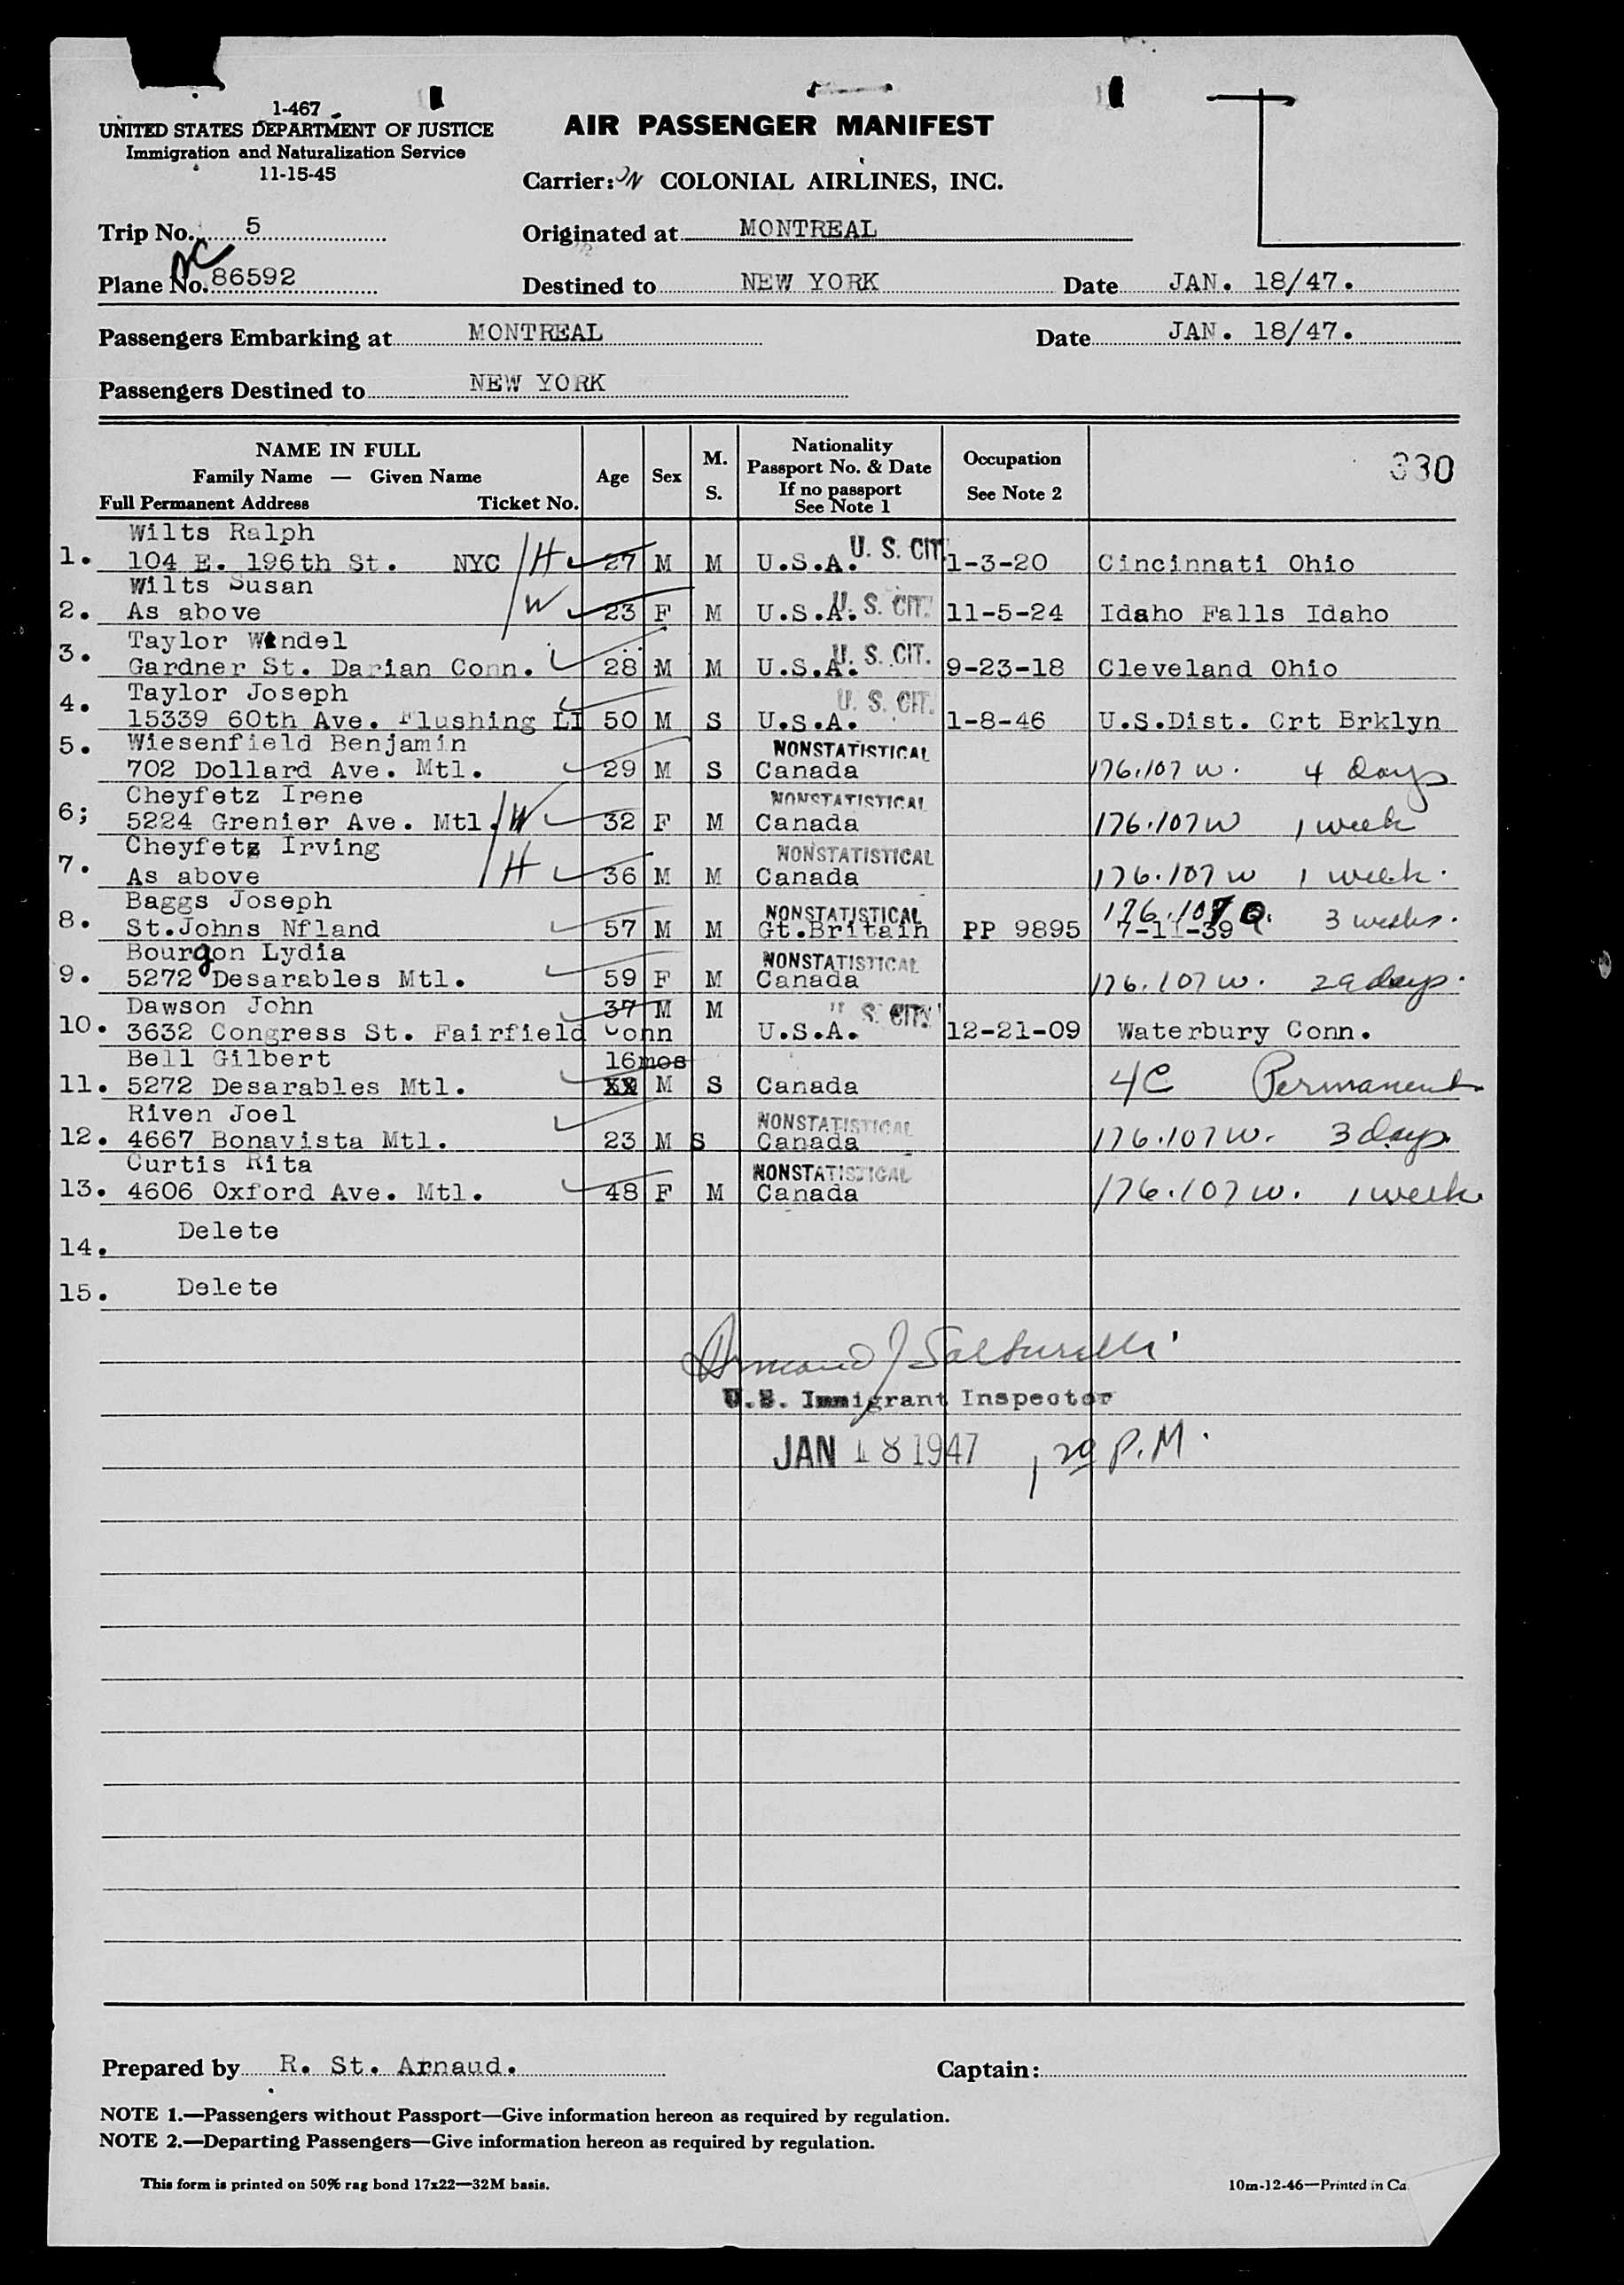 1-467
UNITED STATES DEPARTMENT OF JUSTICE
Immigration and Naturalization Service
11-15-45
AIR PASSENGER MANIFEST
Carrier: COLONIAL AIRLINES, INC.
Trip No. 5
Originated at MONTREAL
NC
Plane No. 86592
Destined to NEW YORK
Date JAN. 18/47.
Passengers Embarking at MONTREAL
Date JAN. 18/47.
Passengers Destined to NEW YORK
NAME IN FULL
Family Name — Given Name
Full Permanent Address Ticket No.
Age
Sex
M.
S.
Nationality
Passport No. & Date
If no passport
See Note 1
Occupation
See Note 2
330
Wilts Ralph
1. 104 E. 196th St. NYC H 27 M M U.S.A. U. S. CIT. 1-3-20 Cincinnati Ohio
Wilts Susan
2. As above W 23 F M U.S.A. U. S. CIT. 11-5-24 Idaho Falls Idaho
Taylor Wendel
3. Gardner St. Darian Conn. 28 M M U.S.A. U. S. CIT. 9-23-18 Cleveland Ohio
Taylor Joseph U. S. CIT.
4. 15339 60th Ave. Flushing LI 50 M S U.S.A. 1-8-46 U.S.Dist. Crt Brklyn
5. Wiesenfield Benjamin NONSTATISTICAL
702 Dollard Ave. Mtl. 29 M S Canada 176.107 W. 4 days
Cheyfetz Irene NONSTATISTICAL
6; 5224 Grenier Ave. Mtl. W 32 F M Canada 176.107 W 1 week
Cheyfetz Irving NONSTATISTICAL
7. As above H 36 M M Canada 176.107 W 1 week.
Baggs Joseph NONSTATISTICAL 176.107 Q. 3 weeks.
8. St.Johns Nfland 57 M M Gt.Britain PP 9895 7-11-39
Bourgon Lydia NONSTATISTICAL
9. 5272 Desarables Mtl. 59 F M Canada 176.107 W. 29 days.
Dawson John 37 M M U. S. CIT.
10. 3632 Congress St. Fairfield Conn U.S.A. 12-21-09 Waterbury Conn.
Bell Gilbert 16mos
11. 5272 Desarables Mtl. XX M S Canada 4C Permanent
Riven Joel NONSTATISTICAL
12. 4667 Bonavista Mtl. 23 M S Canada 176.107 W. 3 days.
Curtis Rita NONSTATISTICAL
13. 4606 Oxford Ave. Mtl. 48 F M Canada 176.107 W. 1 week.
14. Delete
15. Delete
Armand J Salturelli
U.S. Immigrant Inspector
JAN 18 1947 1 20 P.M.
Prepared by R. St. Arnaud.
Captain:
NOTE 1.—Passengers without Passport—Give information hereon as required by regulation.
NOTE 2.—Departing Passengers—Give information hereon as required by regulation.
This form is printed on 50% rag bond 17x22—32M basis.
10m-12-46—Printed in Ca